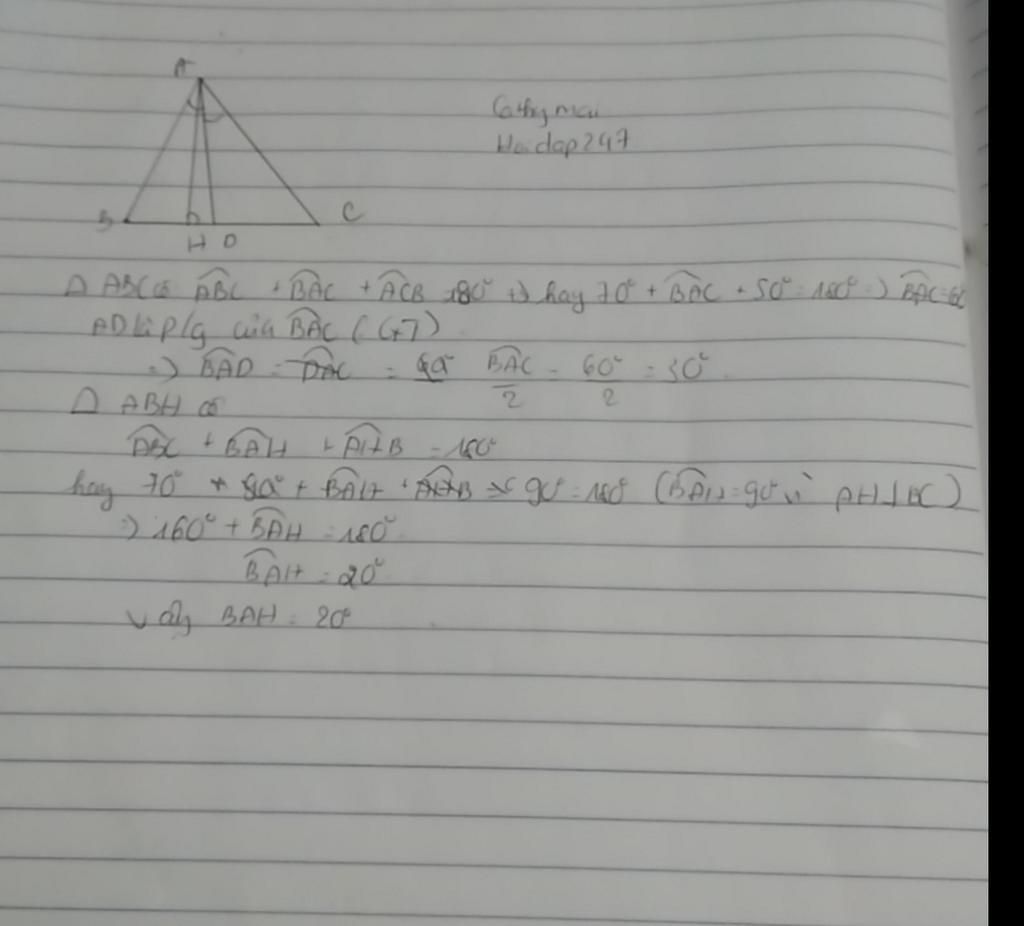 A
Cathymai
Hoidap247
B
C
H D
Δ ABC có ABC + BAC + ACB = 180° => hay 70° + BAC + 50° = 180° => BAC = 60
AD là p/g của BAC (GT)
=> BAD = DAC = BAC/2 = 60°/2 = 30°
Δ ABH có
ABC + BAH + AHB = 180°
hay 70° + BAH + 90° = 180° (BAH = 90° vì AH⊥BC)
=> 160° + BAH = 180°
BAH = 20°
vậy BAH = 20°